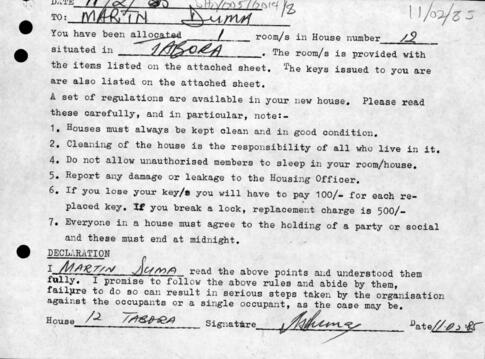 DATE 11/2/85 SHD/005/0014/8
11/02/85
TO: MARTIN DUMA
You have been allocated 1 room/s in House number 12
situated in TABORA. The room/s is provided with
the items listed on the attached sheet. The keys issued to you are
are also listed on the attached sheet.
A set of regulations are available in your new house. Please read
these carefully, and in particular, note:-
1. Houses must always be kept clean and in good condition.
2. Cleaning of the house is the responsibility of all who live in it.
4. Do not allow unauthorised members to sleep in your room/house.
5. Report any damage or leakage to the Housing Officer.
6. If you lose your key/s you will have to pay 100/- for each re-
placed key. If you break a lock, replacement charge is 500/-
7. Everyone in a house must agree to the holding of a party or social
and these must end at midnight.
DECLARATION
I MARTIN DUMA read the above points and understood them
fully. I promise to follow the above rules and abide by them,
failure to do so can result in serious steps taken by the organisation
against the occupants or a single occupant, as the case may be.
House 12 TABORA Signature Date 11.02.85